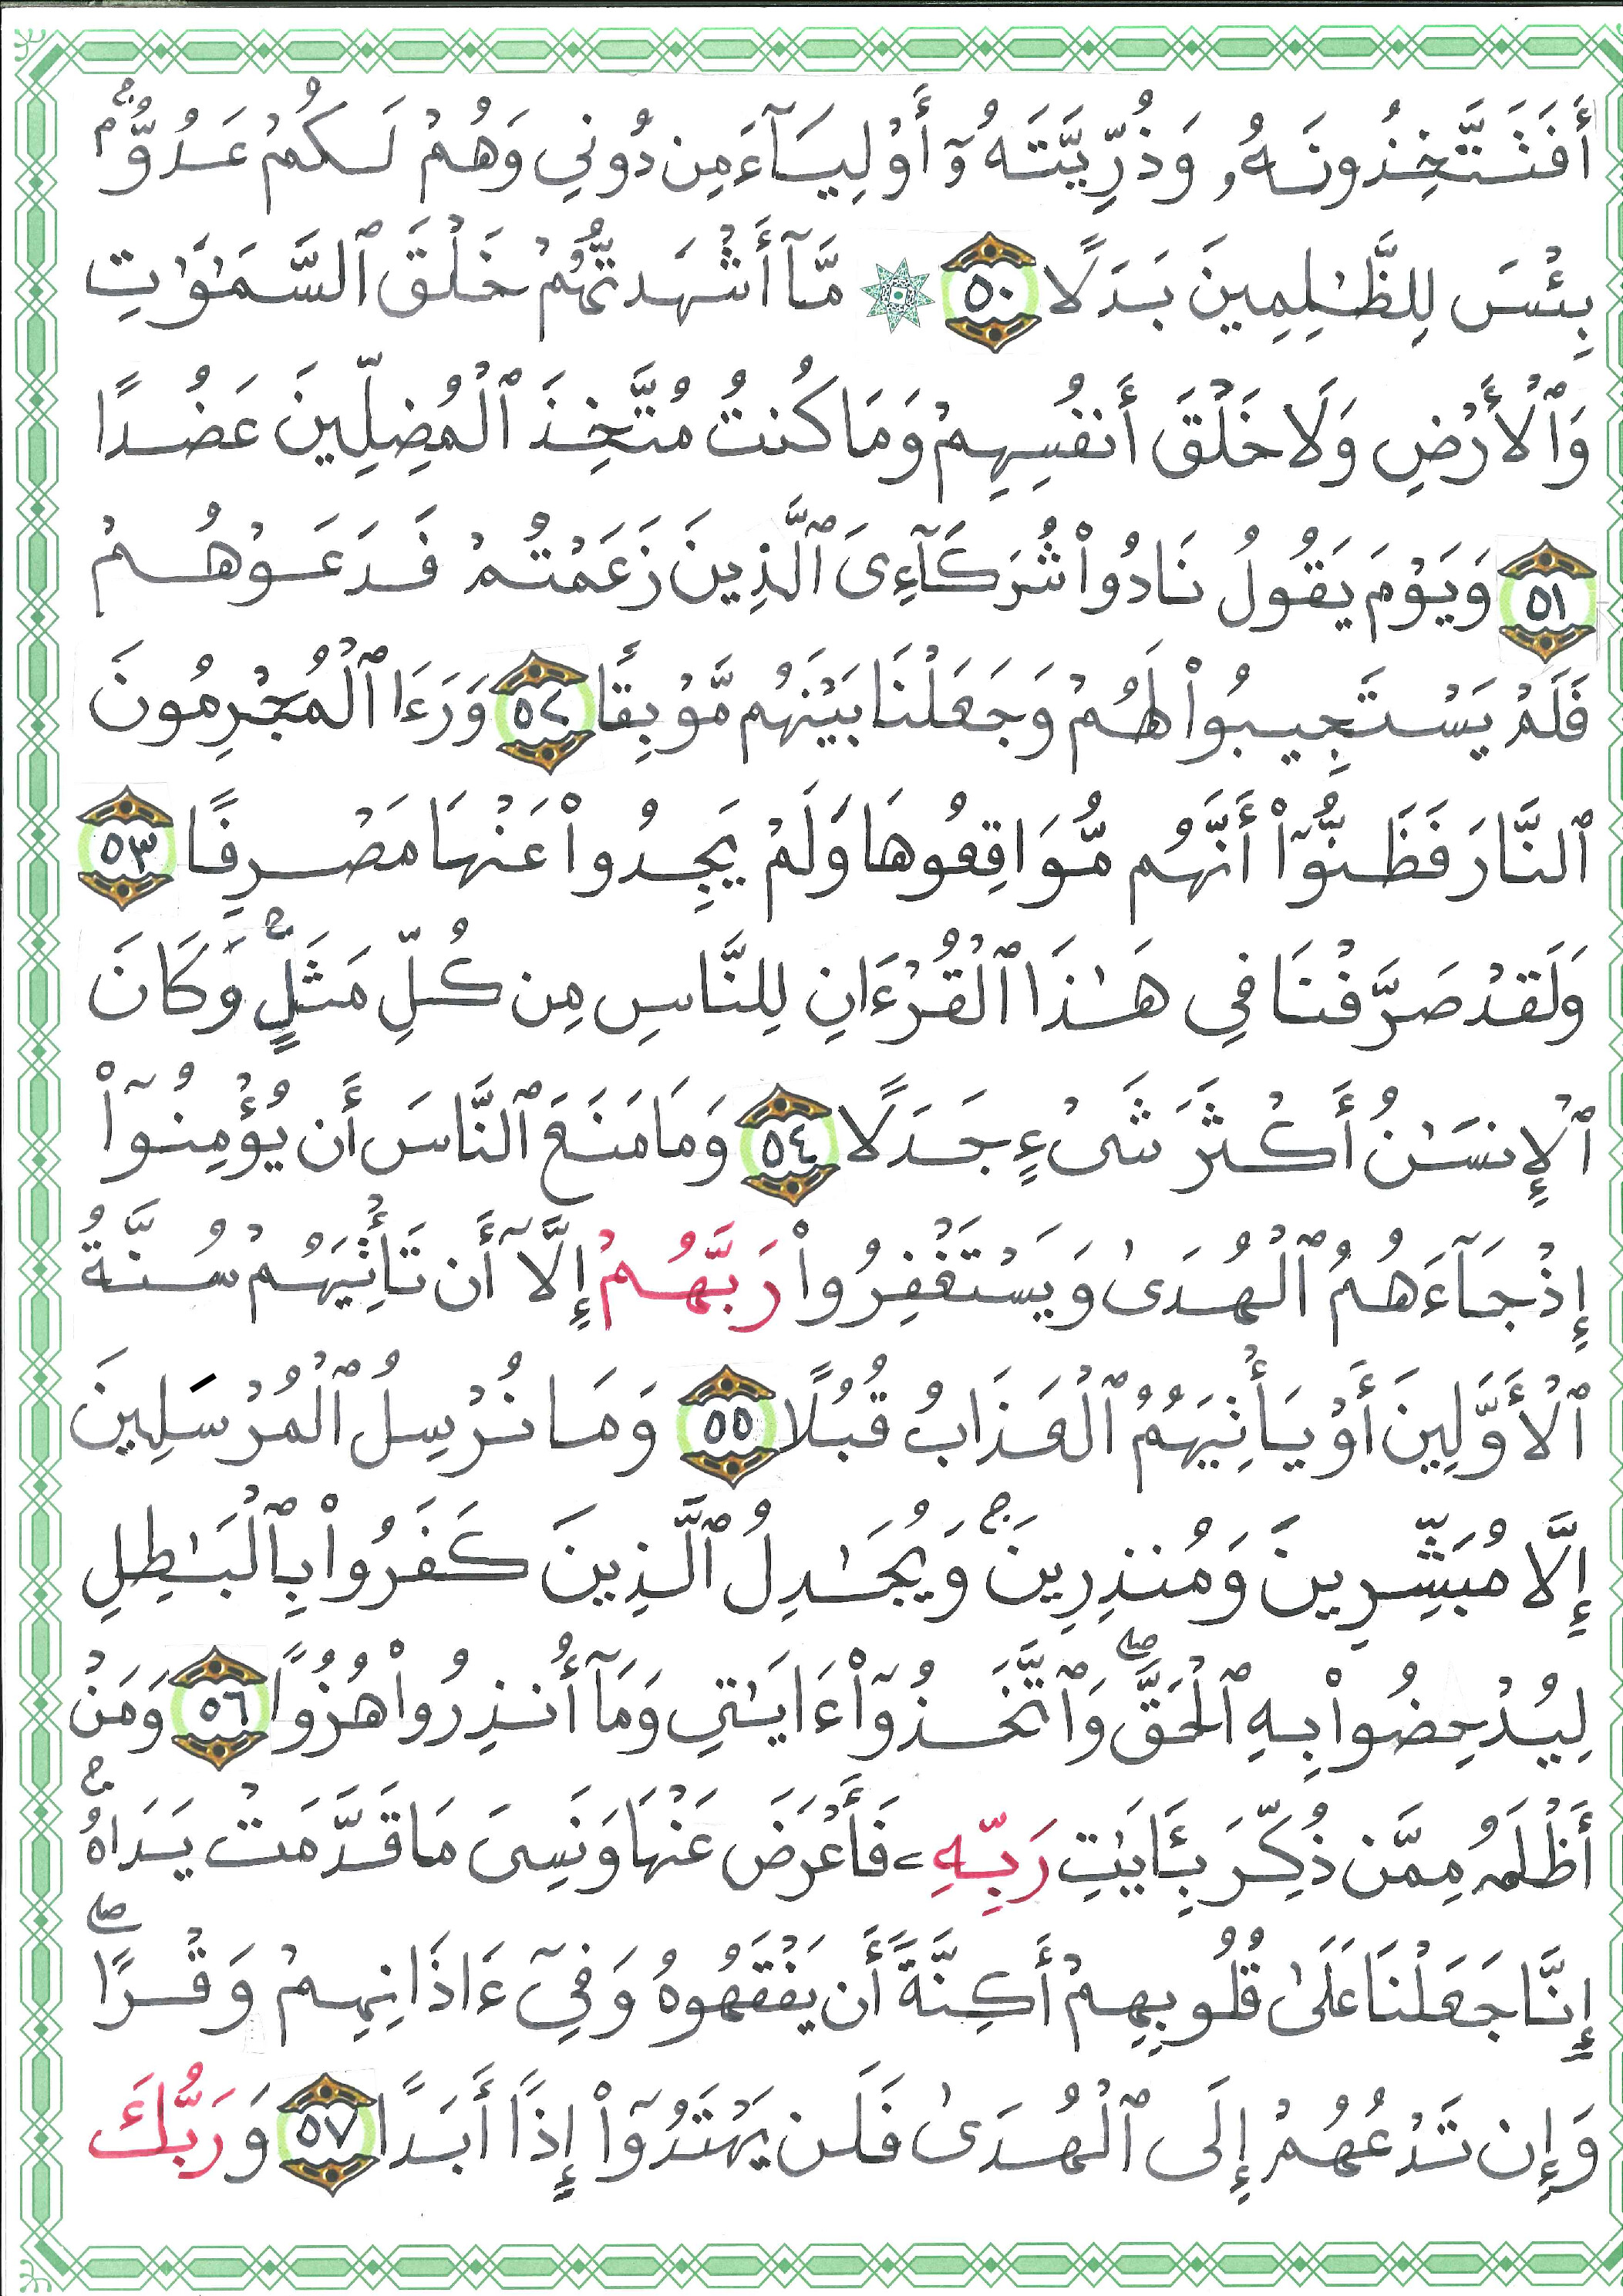 أَفَتَتَّخِذُونَهُۥ وَذُرِّيَّتَهُۥٓ أَوْلِيَآءَ مِن دُونِي وَهُمْ لَكُمْ عَدُوُّۢ
بِئْسَ لِلظَّٰلِمِينَ بَدَلًا ٥٠ ۞ مَّآ أَشْهَدتُّهُمْ خَلْقَ ٱلسَّمَٰوَٰتِ
وَٱلْأَرْضِ وَلَا خَلْقَ أَنفُسِهِمْ وَمَا كُنتُ مُتَّخِذَ ٱلْمُضِلِّينَ عَضُدًا
٥١ وَيَوْمَ يَقُولُ نَادُوا۟ شُرَكَآءِىَ ٱلَّذِينَ زَعَمْتُمْ فَدَعَوْهُمْ
فَلَمْ يَسْتَجِيبُوا۟ لَهُمْ وَجَعَلْنَا بَيْنَهُم مَّوْبِقًا ٥٢ وَرَءَا ٱلْمُجْرِمُونَ
ٱلنَّارَ فَظَنُّوٓا۟ أَنَّهُم مُّوَاقِعُوهَا وَلَمْ يَجِدُوا۟ عَنْهَا مَصْرِفًا ٥٣
وَلَقَدْ صَرَّفْنَا فِي هَٰذَا ٱلْقُرْءَانِ لِلنَّاسِ مِن كُلِّ مَثَلٍۚ وَكَانَ
ٱلْإِنسَٰنُ أَكْثَرَ شَىْءٍ جَدَلًا ٥٤ وَمَا مَنَعَ ٱلنَّاسَ أَن يُؤْمِنُوٓا۟
إِذْ جَآءَهُمُ ٱلْهُدَىٰ وَيَسْتَغْفِرُوا۟ رَبَّهُمْ إِلَّآ أَن تَأْتِيَهُمْ سُنَّةُ
ٱلْأَوَّلِينَ أَوْ يَأْتِيَهُمُ ٱلْعَذَابُ قُبُلًا ٥٥ وَمَا نُرْسِلُ ٱلْمُرْسَلِينَ
إِلَّا مُبَشِّرِينَ وَمُنذِرِينَۚ وَيُجَٰدِلُ ٱلَّذِينَ كَفَرُوا۟ بِٱلْبَٰطِلِ
لِيُدْحِضُوا۟ بِهِ ٱلْحَقَّۖ وَٱتَّخَذُوٓا۟ ءَايَٰتِي وَمَآ أُنذِرُوا۟ هُزُوًا ٥٦ وَمَنْ
أَظْلَمُ مِمَّن ذُكِّرَ بِـَٔايَٰتِ رَبِّهِۦ فَأَعْرَضَ عَنْهَا وَنَسِىَ مَا قَدَّمَتْ يَدَاهُۚ
إِنَّا جَعَلْنَا عَلَىٰ قُلُوبِهِمْ أَكِنَّةً أَن يَفْقَهُوهُ وَفِيٓ ءَاذَانِهِمْ وَقْرًاۖ
وَإِن تَدْعُهُمْ إِلَى ٱلْهُدَىٰ فَلَن يَهْتَدُوٓا۟ إِذًا أَبَدًا ٥٧ وَرَبُّكَ